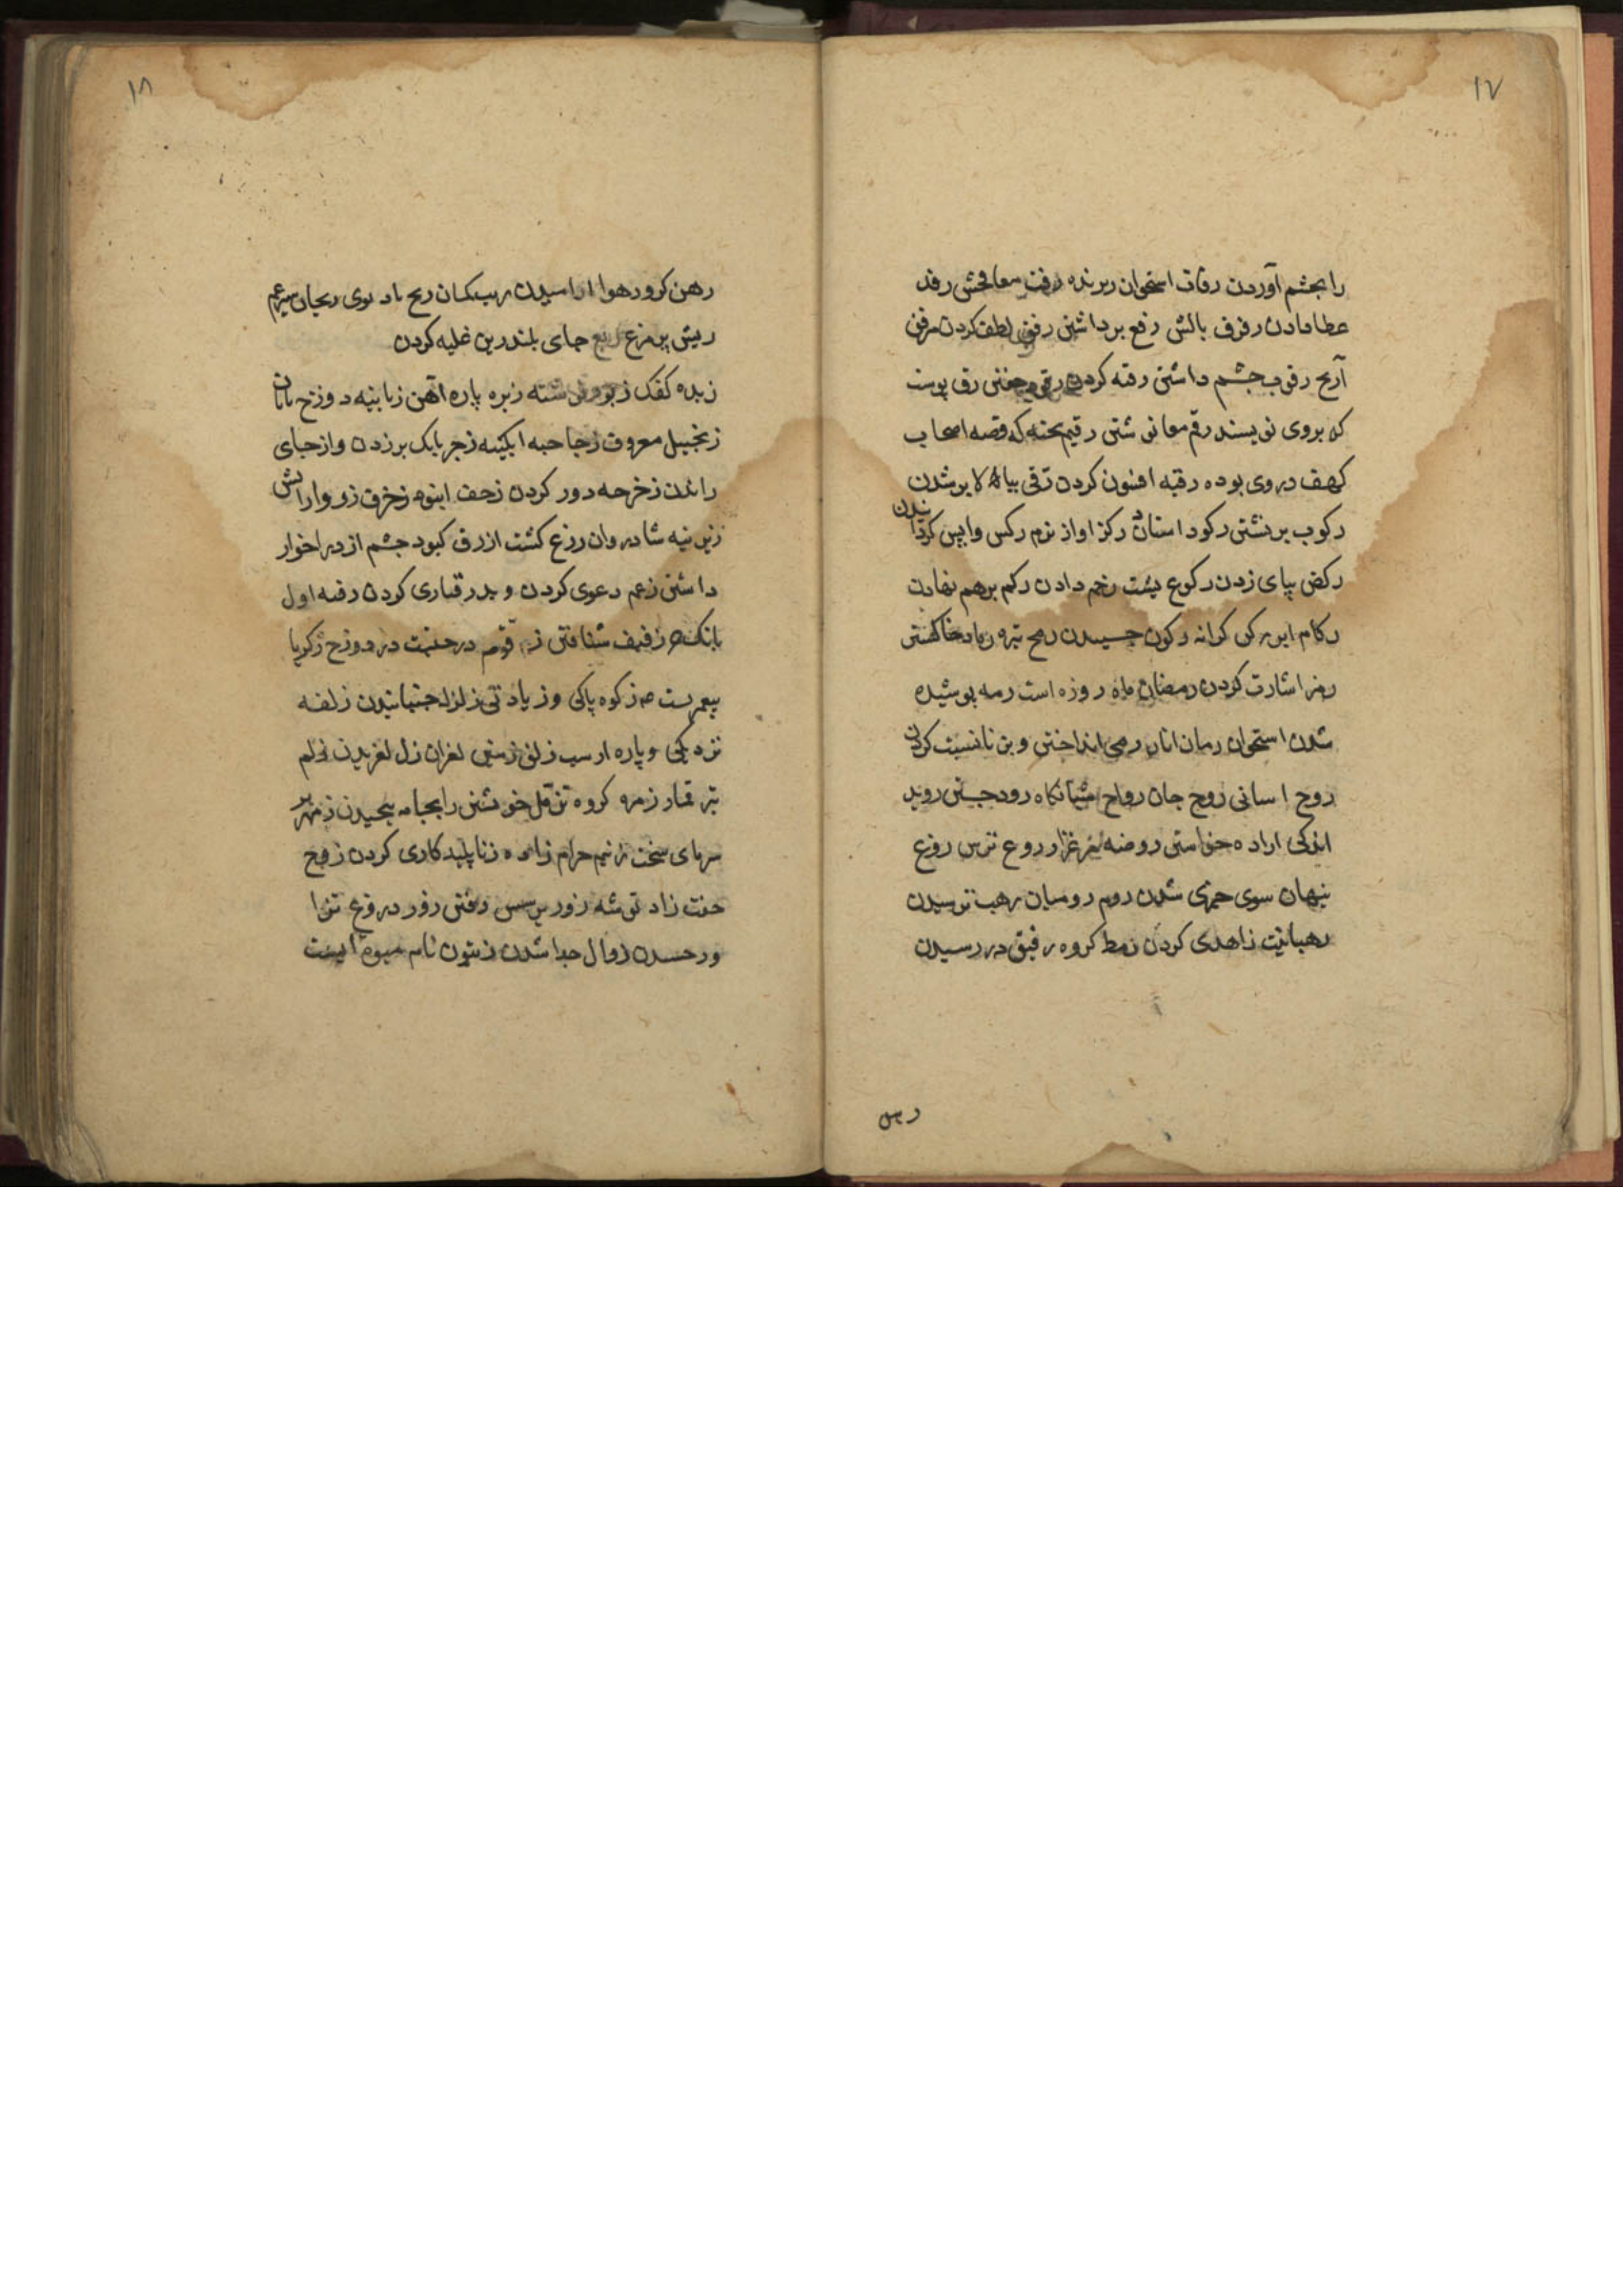 ۱۷
را بچشم آوردن رفات استخوان ریزنده رفث معا فحش رفد
عطا دادن رفرف بالش رفع برداشتن رفق لطف کردن مرفق
آرنج رقوب چشم داشتن رقبه کردن رقود خفتن رق پوست
که بروی نویسند رقم معا نوشتن رقیم تخته که قصه اصحاب
کهف در وی بوده رقیه افسون کردن ترقی ببالا بر شدن
رکوب برنشتن رکود استادن رکز اواز نرم رکس واپس کردانیدن
رکض بپای زدن رکوع پشت خم دادن رکم برهم نهادن
رکام ابر رکن کرانه رکون چسبیدن رمح نیزه رماد خاکستر
رمز اشارت کردن رمضان ماه روزه است رمه پوسیده
شدن استخوان رمان انار رمی انداختن و بزنا نسبت کردن
روح اسانی روح جان رواح شبانکاه رود جستن روید
اندکی اراده خواستن روضه مرغزار روع ترس روغ
پنهان سوی چیزی شدن روم رومیان رهب ترسیدن
رهبانیت زاهدی کردن رهط کروه رهق در رسیدن
رهن
۱۸
رهن کرو رهوا ارامیدن ریب کمان ریح باد بوی ریحان سپرغم
ریش پر مرغ ریع جای بلند رین غلبه کردن
زبد کفک زبور نوشته زبره پاره اهن زبانیه دوزخ بانان
زنجبیل معروف زجاجه ابکینه زجر بانک برزدن و از جای
راندن زحزحه دور کردن زحف انبوه زخرف زر و ارایش
زربیه شادروان زرع کشت ازرق کبود چشم ازدرا خوار
داشتن زعم دعوی کردن و پذرفتاری کردن زفیر اول
بانک خر زفیف شتافتن زقوم درختیست در دوزخ زکریا
پیغمبریست زکوه پاکی و زیادتی زلزله جنبانیدن زلفه
نزدیکی و پاره از شب زلق زمین لغزان زلل لغزیدن زلم
تیر قمار زمره کروه تزمل خویشتن را بجامه پیچیدن زمهریر
سرمای سخت زنیم حرام زاده زنا پلید کاری کردن زوج
جفت زاد توشه زور پرسش رفتن زور دروغ تزوا
ورچسدن زوال جدا شدن زیتون نام میوه ایست